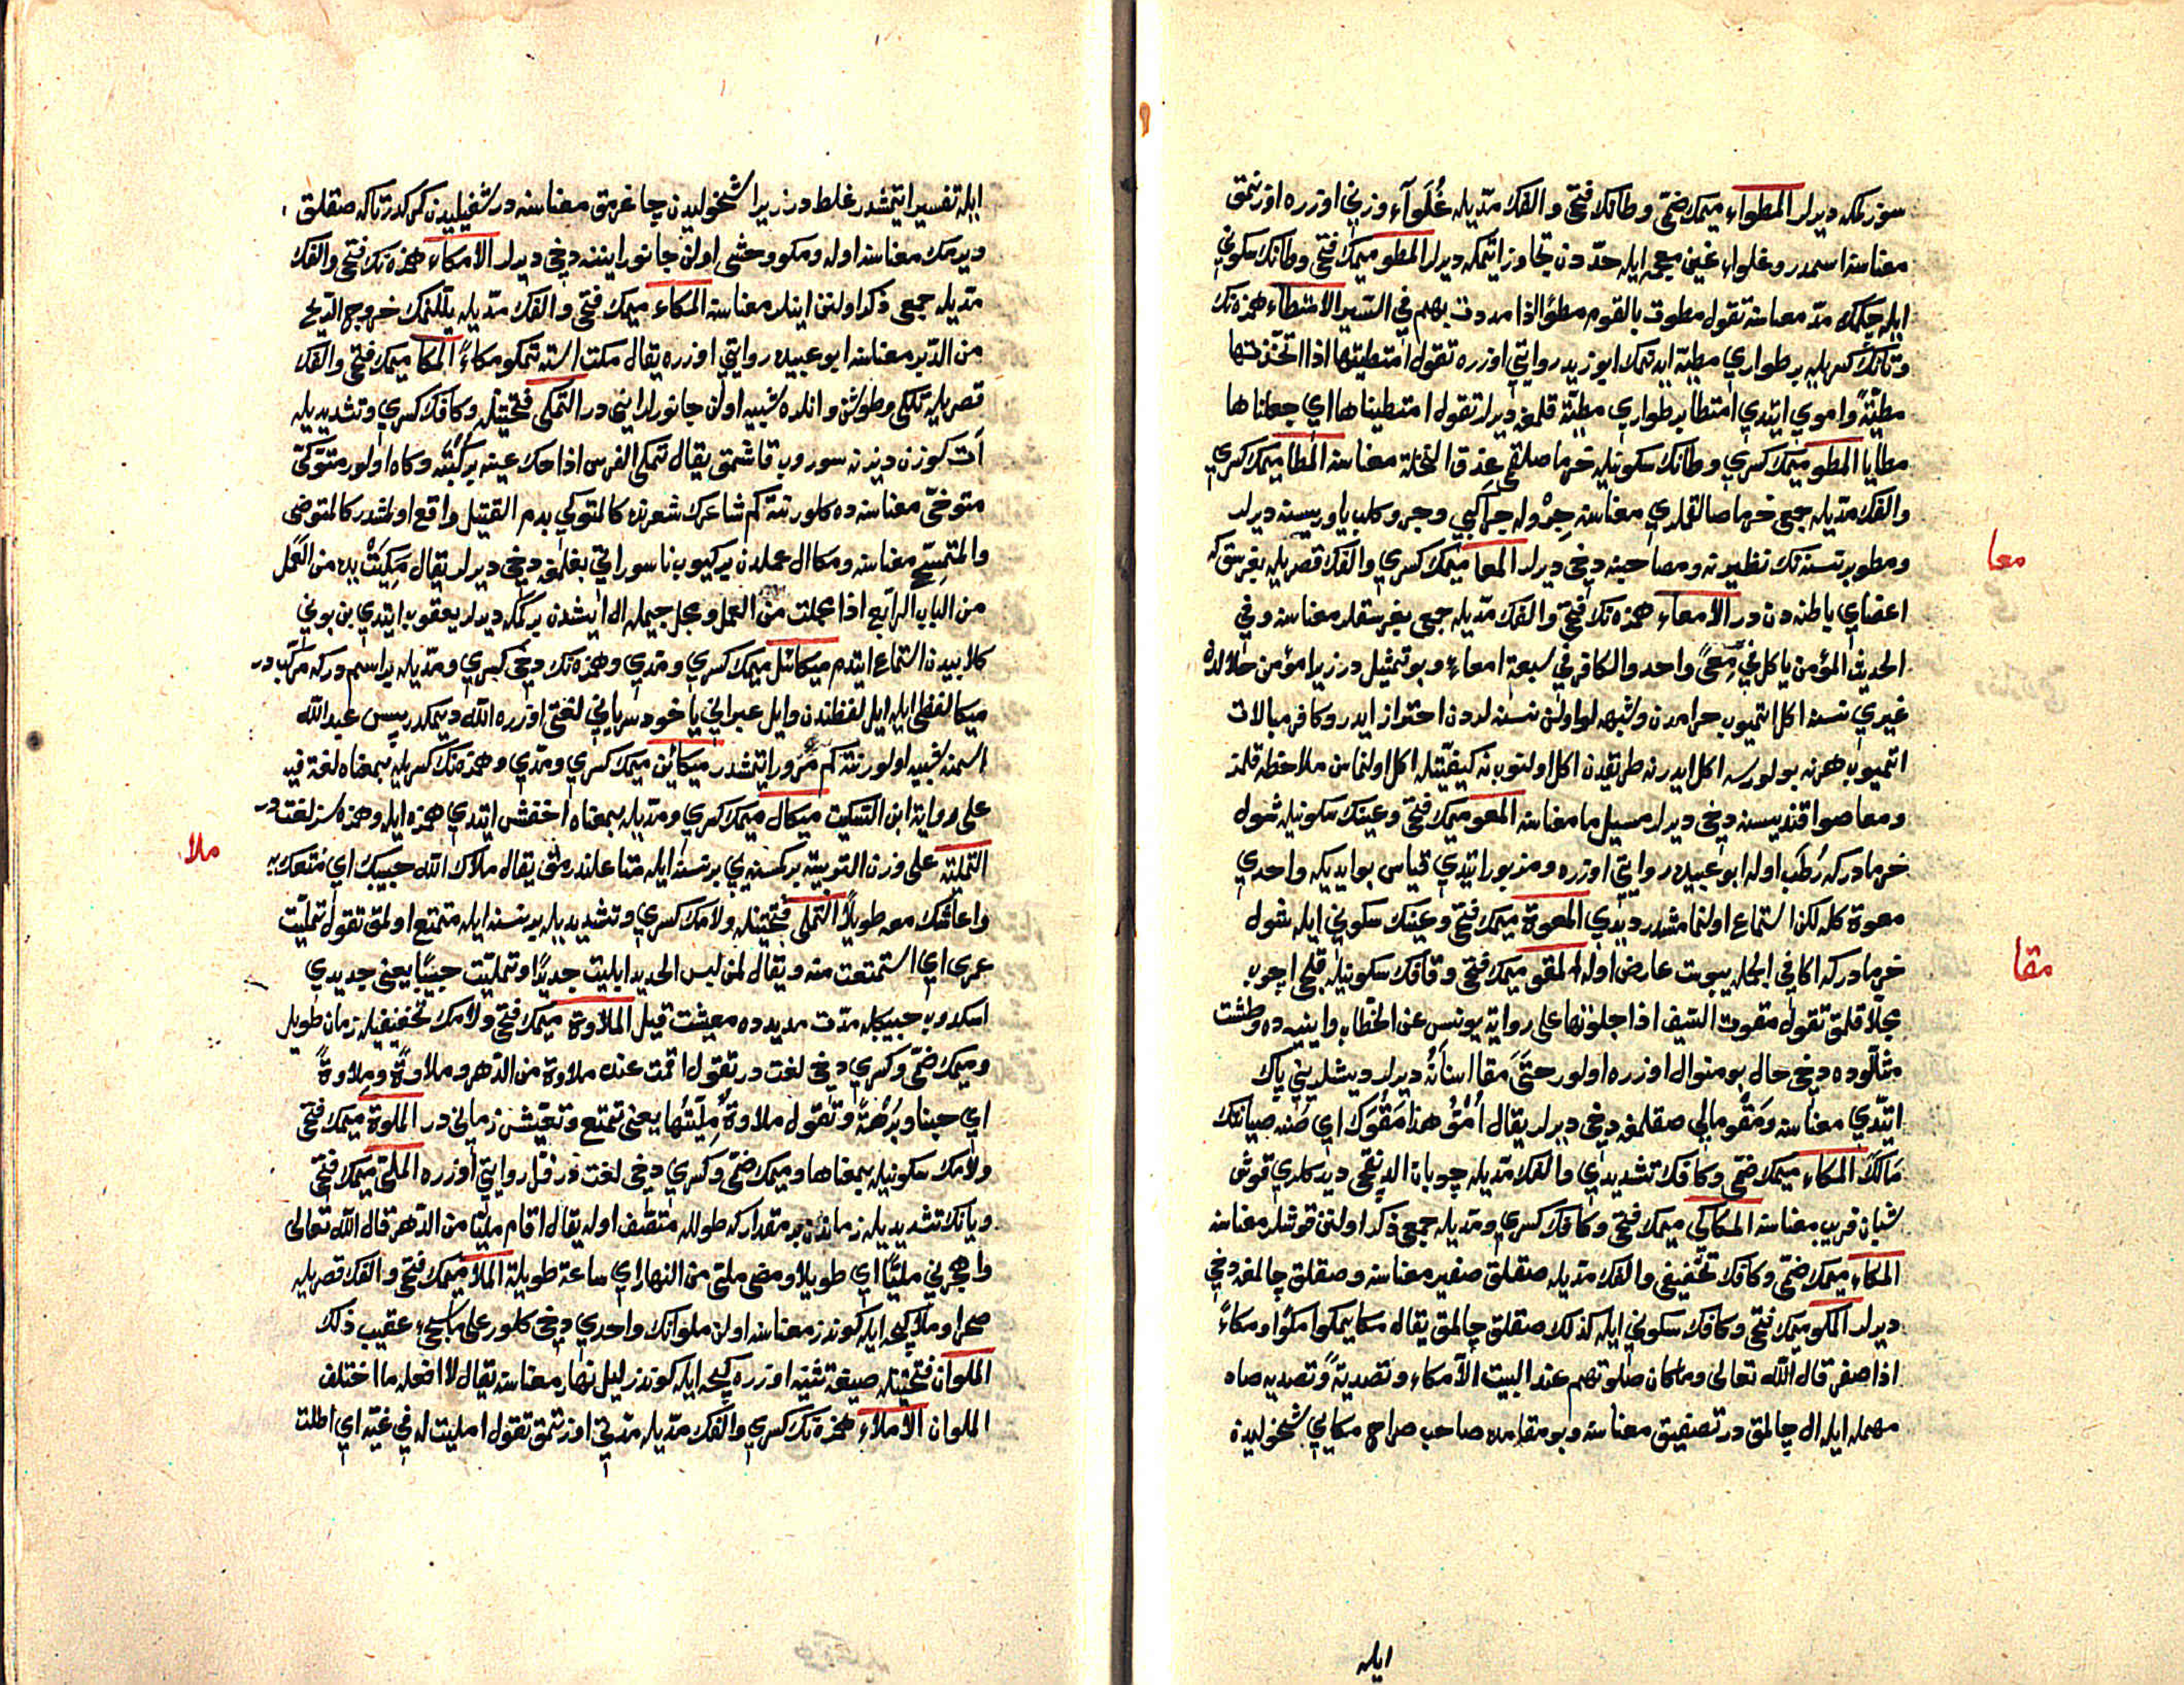 سوزلمكه ديرلر المطواء ميمك ضمى وطانك فتحى والفك مديله غلواء وزنى اوزره اوزنمق
معناسنه اسمدر وغلواء غين معجمه ايله حددن تجاوز ايتمكه ديرلر المطو ميمك فتحى وطانك سكونى
ايله چكمك مد معناسنه تقول مطوت بالقوم مطوا اذا مددت بهم فى السير الامتطاء همزه نك
وتانك كسريله بر طوارى مطيه ايدنمك ابوزيد روايتى اوزره تقول امتطيتها اذا اتخذتها
مطية واموى ايتدى امتطا بر طوارى مطيه قلمغه ديرلر تقول امتطيناها اى جعلناها
مطايا المطو ميمك كسرى وطانك سكونيله خرما صلقمى عذق النخلة معناسنه المطا ميمك كسرى
والفك مديله جمع خرما صالقملرى معناسنه جرو له جرا كبى وجرو كلب ياوريسنه ديرلر
ومطو بر نسنه نك نظيرنه ومصاحبنه دخى ديرلر المعا ميمك كسرى والفك قصريله بغرسق كه
معا
اعضاى باطنه دندر الامعاء همزه نك فتحى والفك مديله جمع بغرسقلر معناسنه وفى
الحديث المؤمن ياكل فى معى واحد والكافر فى سبعة امعاء وبو تمثيل در زيرا مؤمن حلالدن
غيرى نسنه اكل ايتميوب حرامدن وشبهه لو اولن نسنه لردن احتراز ايدر وكافر مبالات
ايتميوب هر نه بولورسه اكل ايدر نه طريقدن اكل اولنوب نه كيفيتيله اكل اولنماسن ملاحظه قلمز
ومعا صو اقنديسنه دخى ديرلر مسيل ما معناسنه المعو ميمك فتحى وعينك سكونيله شول
خرمادر كه رطب اوله ابو عبيده روايتى اوزره ومزبور ايتدى قياس بو ايديكه واحدى
معوة كله لكن استماع اولنمامشدر ديدى المعوة ميمك فتحى وعينك سكونى ايله شول
خرمادر كه اكا فى الجمله يبوست عارض اوله المقو ميمك فتحى وقافك سكونيله قلجى اچوب
مقا
مجلا قلمق تقول مقوت السيف اذا جلوتها على رواية يونس عن الخطاب وآينيه ده وطشت
مثللوده دخى حال بو منوال اوزره اولور حتى مقا اسنانه ديرلر ديشلرينى پاك
ايتدى معناسنه ومقو مالى صقلمغه دخى ديرلر يقال امق هذا مقوك اى صنه صيانتك
مالك المكاء ميمك ضمى وكافك تشديدى والفك مديله چوبان الدنقجى ديدكلرى قوش
شبان فريب معناسنه المكاكى ميمك فتحى وكافك كسرى ومديله جمع ذكر اولنن قوشلر معناسنه
المكاء ميمك ضمى وكافك تخفيفى والفك مديله صقلق صفير معناسنه وصقلق چالمغه دخى
ديرلر المكو ميمك فتحى وكافك سكونى ايله كذلك صقلق چالمق يقال مكا يمكوا مكوا ومكاء
اذا صفر قال الله تعالى وماكان صلوتهم عند البيت الا مكاء وتصدية وتصديه صاد
مهمله ايله ال چالمق در تصفيق معناسنه وبو مقامده صاحب صراح مكايى شخوليدن
ايله
ايله تفسير ايتمشدر غلط در زيرا شخوليدن چاغرمق معناسنه در شفيليدن كرك در تاكه صقلق
ديرمك معناسنه اوله ومكو وحشى اولن جانور اينينه دخى ديرلر الامكاء همزه نك فتحى والفك
مديله جمعى ذكر اولنن اينلر معناسنه المكاء ميمك فتحى والفك مديله يللنمك خروج الريح
من الدبر معناسنه ابو عبيده روايتى اوزره يقال مكت استه تمكو مكاء المكا ميمك فتحى والفك
قصريله تلكى وطوشن وانلره شبيه اولن جانورلر اينى در التمكى فتحتينله وكافك كسرى وتشديديله
آت كوزن ديزنه سوروب قاشمق يقال تمكى الفرس اذا حك عينه بركبته وكاه اولور متوكى
متوضى معناسنه ده كلور نته كم شاعرك شعرنده كالمتوكى بدم القتيل واقع اولمشدر كالمتوضى
والمتمسح معناسنه ومكا ال عملدن يركيوب ناسور اتى بغلمغه دخى ديرلر يقال مكيت يده من العمل
من الباب الرابع اذا مجلت من العمل ومجل جيمله ال ايشدن يركمكه ديرلر يعقوب ايتدى بن بونى
كلابيدن استماع ايتدم ميكائل ميمك كسرى ومدى وهمزه نك دخى كسرى ومديله بر اسم در كه مركب در
ميكا لفظى ايله ايل لفظندن وايل عبرانى ياخود سريانى لغتى اوزره الله ديمكدر پس عبدالله
اسمنه شبيه اولور نته كم مرور ايتمشدر ميكائن ميمك كسرى ومدى وهمزه نك كسريله بمعناه لغة فيه
على رواية ابن السكيت ميكال ميمك كسرى ومديله بمعناه اخفش ايتدى همزه ايله وهمزه سز لغت در
التملية على وزن التوبية بر كمسنه يى بر نسنه ايله متاعلندرمق يقال ملاك الله حبيبك اى متعك به
ملا
واعاشك معه طويلا التملى فتحتينله ولامك كسرى وتشديديله بر نسنه ايله متمتع اولمق تقول تمليت
عمرى اى استمتعت منه ويقال لمن لبس الجديد ابليت جديدا وتمليت حبيبا يعنى جديدى
اسكدوب حبيبكله مدت مديده ده معيشت قيل الملاوة ميمك فتحى ولامك تخفيفيله زمان طويل
وميمك ضمى وكسرى دخى لغت در تقول اقمت عنده ملاوة من الدهر وملاوة وملاوة
اى حينا وبرهة وتقول ملاوة مليتها يعنى تمتع وتعيش زمانى در الملوة ميمك فتحى
ولامك سكونيله بمعناها وميمك ضمى وكسرى دخى لغت در فرا روايتى اوزره الملى ميمك فتحى
ويانك تشديديله زماندن بر مقدار كه طولله متصف اوله يقال اقام مليا من الدهر قال الله تعالى
واهجرنى مليا اى طويلا ومضى ملى من النهار اى ساعة طويلة الملا ميمك فتحى والفك قصريله
صحرا وملا كيجه ايله كوندز معناسنه اولن ملوانك واحدى دخى كلور على ماسيجىء عقيب ذلك
الملوان فتحتينله صيغه تثنيه اوزره كيجه ايله كوندز ليل نهار معناسنه يقال لا افعله ما اختلف
الملوان الاملاء همزه نك كسرى والفك مديله مدتى اوزتمق تقول امليت له فى غيه اى اطلت